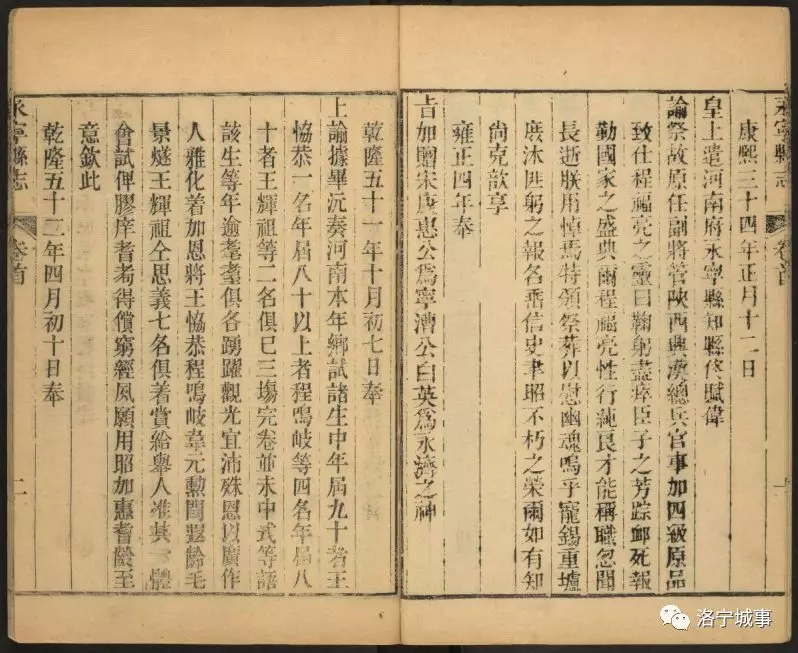 永寧縣志
卷首
一
康熙三十四年正月十二日
皇上遣河南府永寧縣知縣佟賦偉
諭祭故原任副將管陝西興漢總兵官事加四級原品
致仕程福亮之靈曰鞠躬盡瘁臣子之芳踪䘏死報
勤國家之盛典爾程福亮性行純良才能稱職忽聞
長逝朕用悼焉特頒祭葬以慰幽魂嗚乎寵錫重壚
庶沐匪躬之報名垂信史聿昭不朽之榮爾如有知
尚克歆享
雍正四年奉
旨加贈宋康惠公爲寧漕公白英爲永濟之神
乾隆五十一年十月初七日奉
上諭據畢沅奏河南本年鄉試諸生中年屆九十者王
協恭一名年屆八十以上者程鳴岐等四名年屆八
十者王輝祖等二名俱已三塲完卷並未中式等語
該生等年逾耄耋俱各踴躍觀光宜沛殊恩以廣作
人雅化着加恩將王協恭程鳴岐韋元勲閆遐齡毛
景燧王輝祖仝思義七名俱着賞給舉人准其一體
會試俾膠庠耆耇得償窮經夙願用昭加惠耆齡至
意欽此
乾隆五十二年四月初十日奉
永寧縣志
卷首
二
洛宁城事